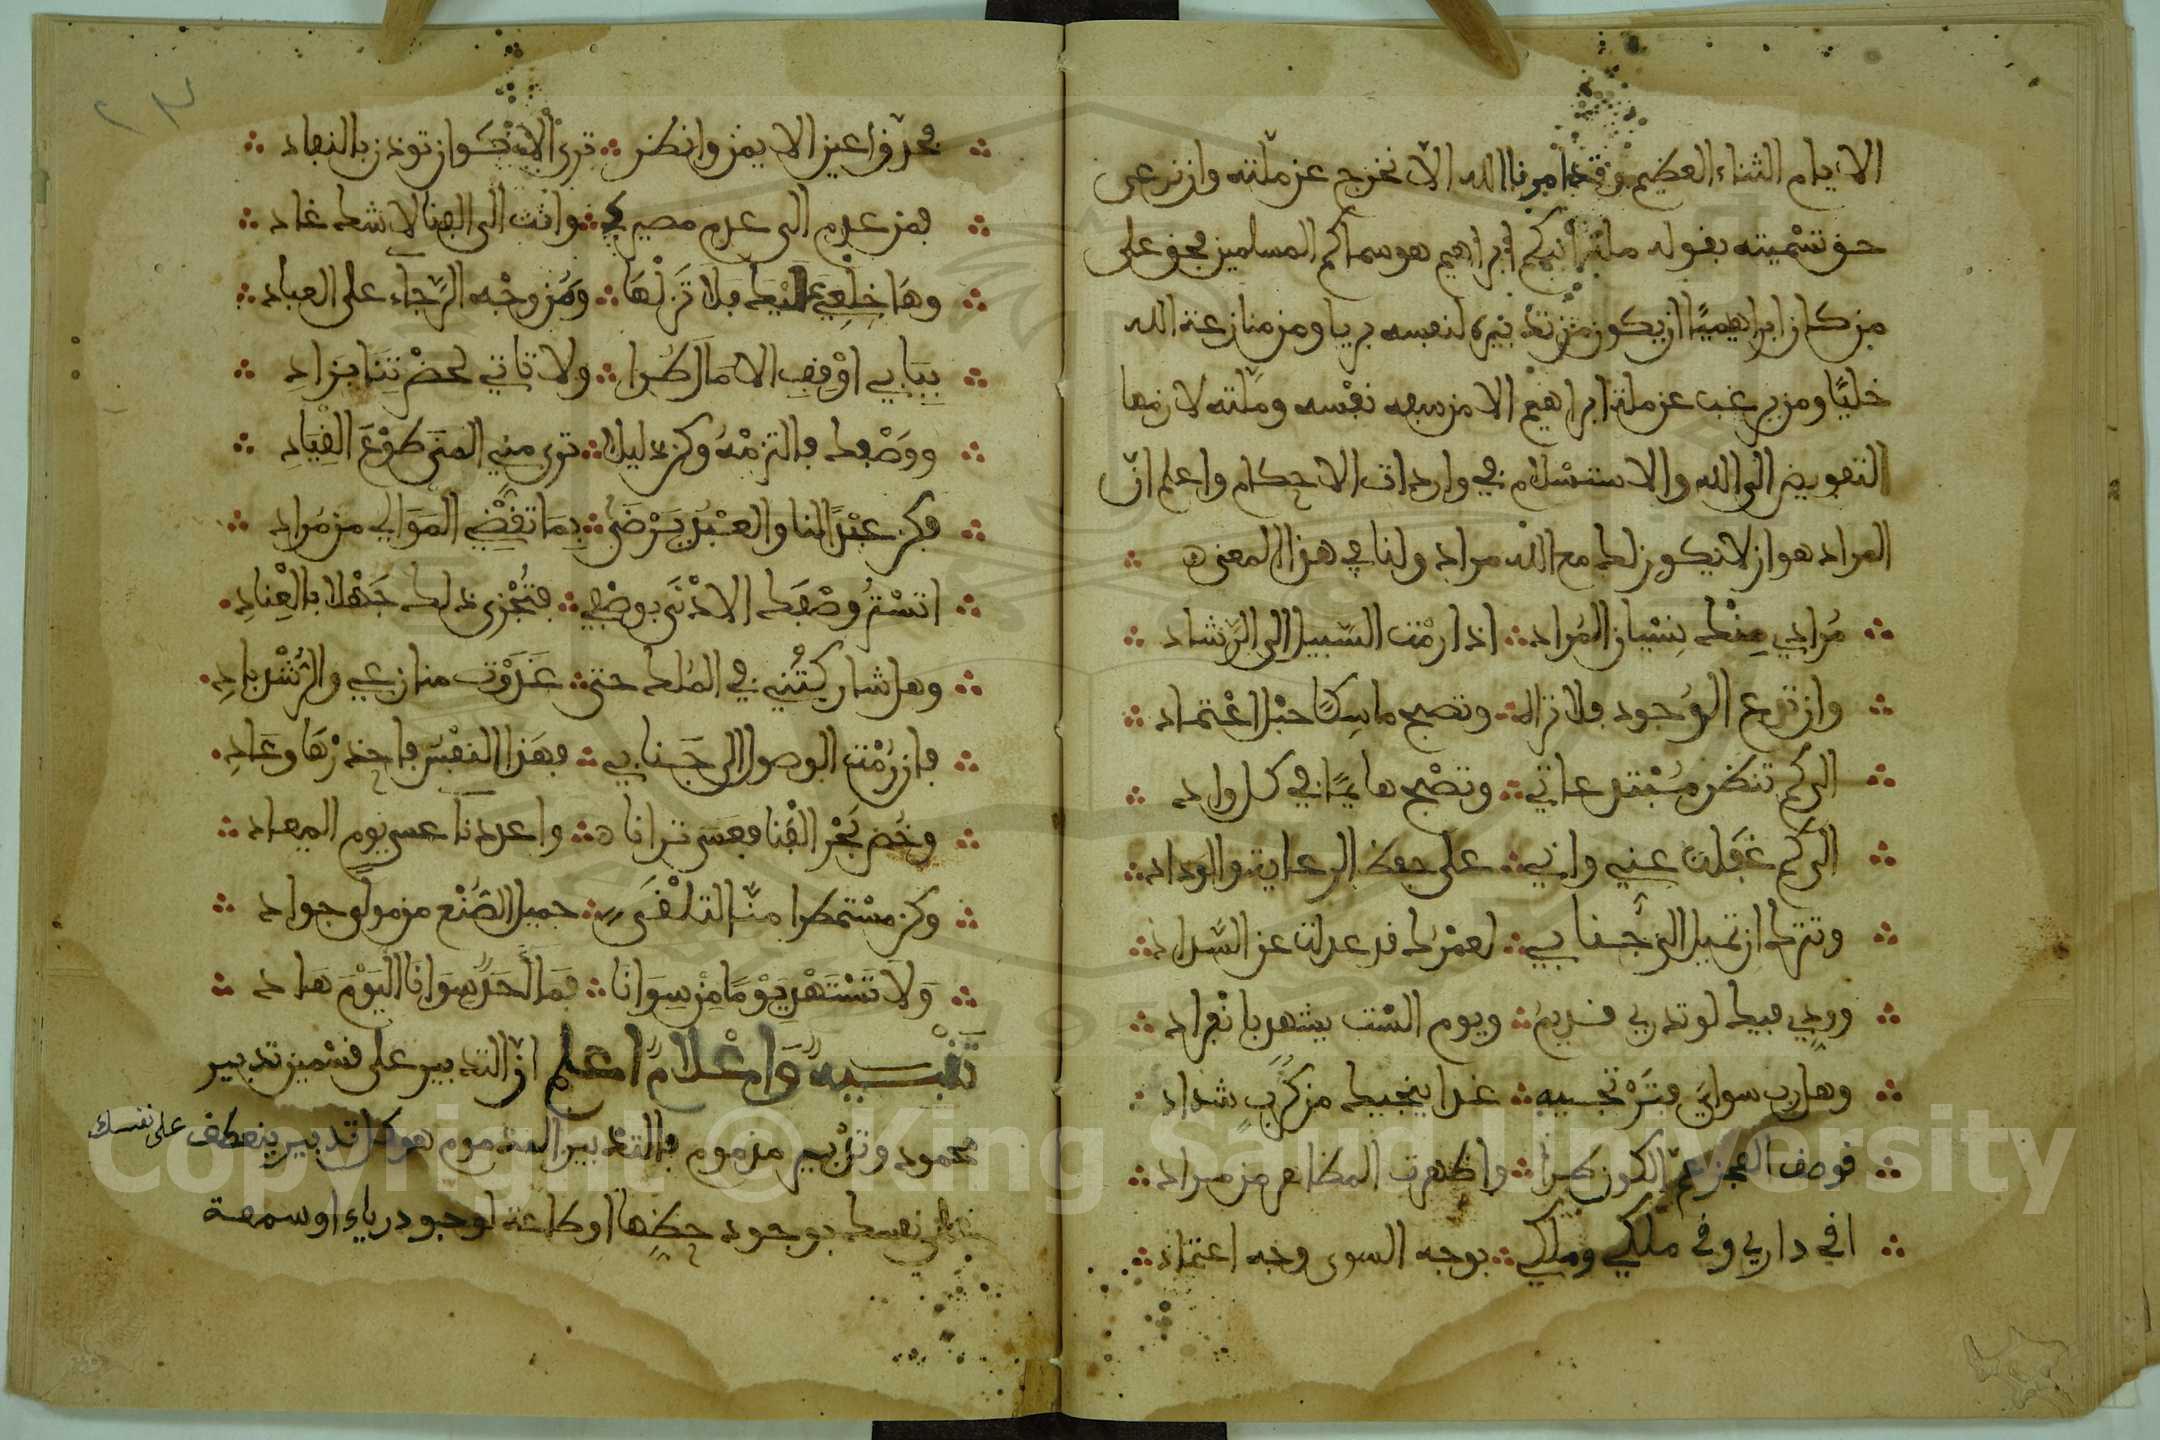 الايام الثناء العظيم وقد امرنا الله الا نخرج عن ملته وان نرعى
حق تسميته بقوله ملة ابيكم ابراهيم هو سماكم المسلمين فحق على
من كان ابراهيميا ان يكون من تدبيره لنفسه بريا ومن منازعة الله
خليا ومن يرغب عن ملة ابراهيم الا من سفه نفسه وملته لازمها
التفويض الى الله والاستسلام في واردات الاحكام واعلم ان
المراد هو ان لا يكون لك مع الله مراد ولنا في هذا المعنى
مرادي منك نسيان المراد ∴ اذا رمت السبيل الى الرشاد
وان تدع الوجود فلا تراه ∴ وتصبح ماسكا حبل اعتماد
الى كم تنظر مبتدعاتي ∴ وتصبح هايما في كل واد
الى كم غفلت عني واني ∴ على حفظ الرعاية والوداد
وتترك ان تميل الى جنابي ∴ لعمرك قد عدلت عن السداد
وودي فيك لو تدري قديم ∴ ويوم الست يشهد بانفراد
وهل رب سواي فترتجيه ∴ غدا ينجيك من كرب شداد
فوصف العجز عم الكون طرا ∴ واظهرت المظاهر من مراد
افي داري وفي ملكي وملكي ∴ توجه للسوى وجه اعتماد
فحدق اعين الايمن وانظر ∴ ترى الاكوان توذن بالنفاد
فمن عدم الى عدم مصير ∴ وانت الى الفنا لا شك غاد
وها خلعي عليك فلا تزلها ∴ وصن وجه الرجاء على العباد
ببابي اوقف الامال طرا ∴ ولا تاتي لحضرتنا بزاد
ووصفك فالتزمه وكن ذليلا ∴ ترى مني المنى طوع القياد
فكن عبدا لنا والعبد يرضى ∴ بما تقضي الموالي من مراد
اتستر وصفك الادنى بوصفي ∴ فتجزى ذلك جهلا بالعناد
وهل شاركتني في الملك حتى ∴ غدوت منازعي والرشد باد
فان رمت الوصول الى جنابي ∴ فهذا النفس فاحذرها وعاد
وخض بحر الفنا فعسى ترانا ∴ واعددنا عسى يوم المعاد
وكن مستمطرا منا التلقى ∴ جميل الصنع من مولى جواد
ولا تستهد يوما من سوانا ∴ فما احد سوانا اليوم هاد
تنبيه واعلام اعلم ان التدبير على قسمين تدبير
محمود وتدبير مذموم فالتدبير المذموم هو كل تدبير ينعطف على نفسك
نفسك بوجود حظها او طاعة لوجود رياء او سمعة
Copyright © King Saud University